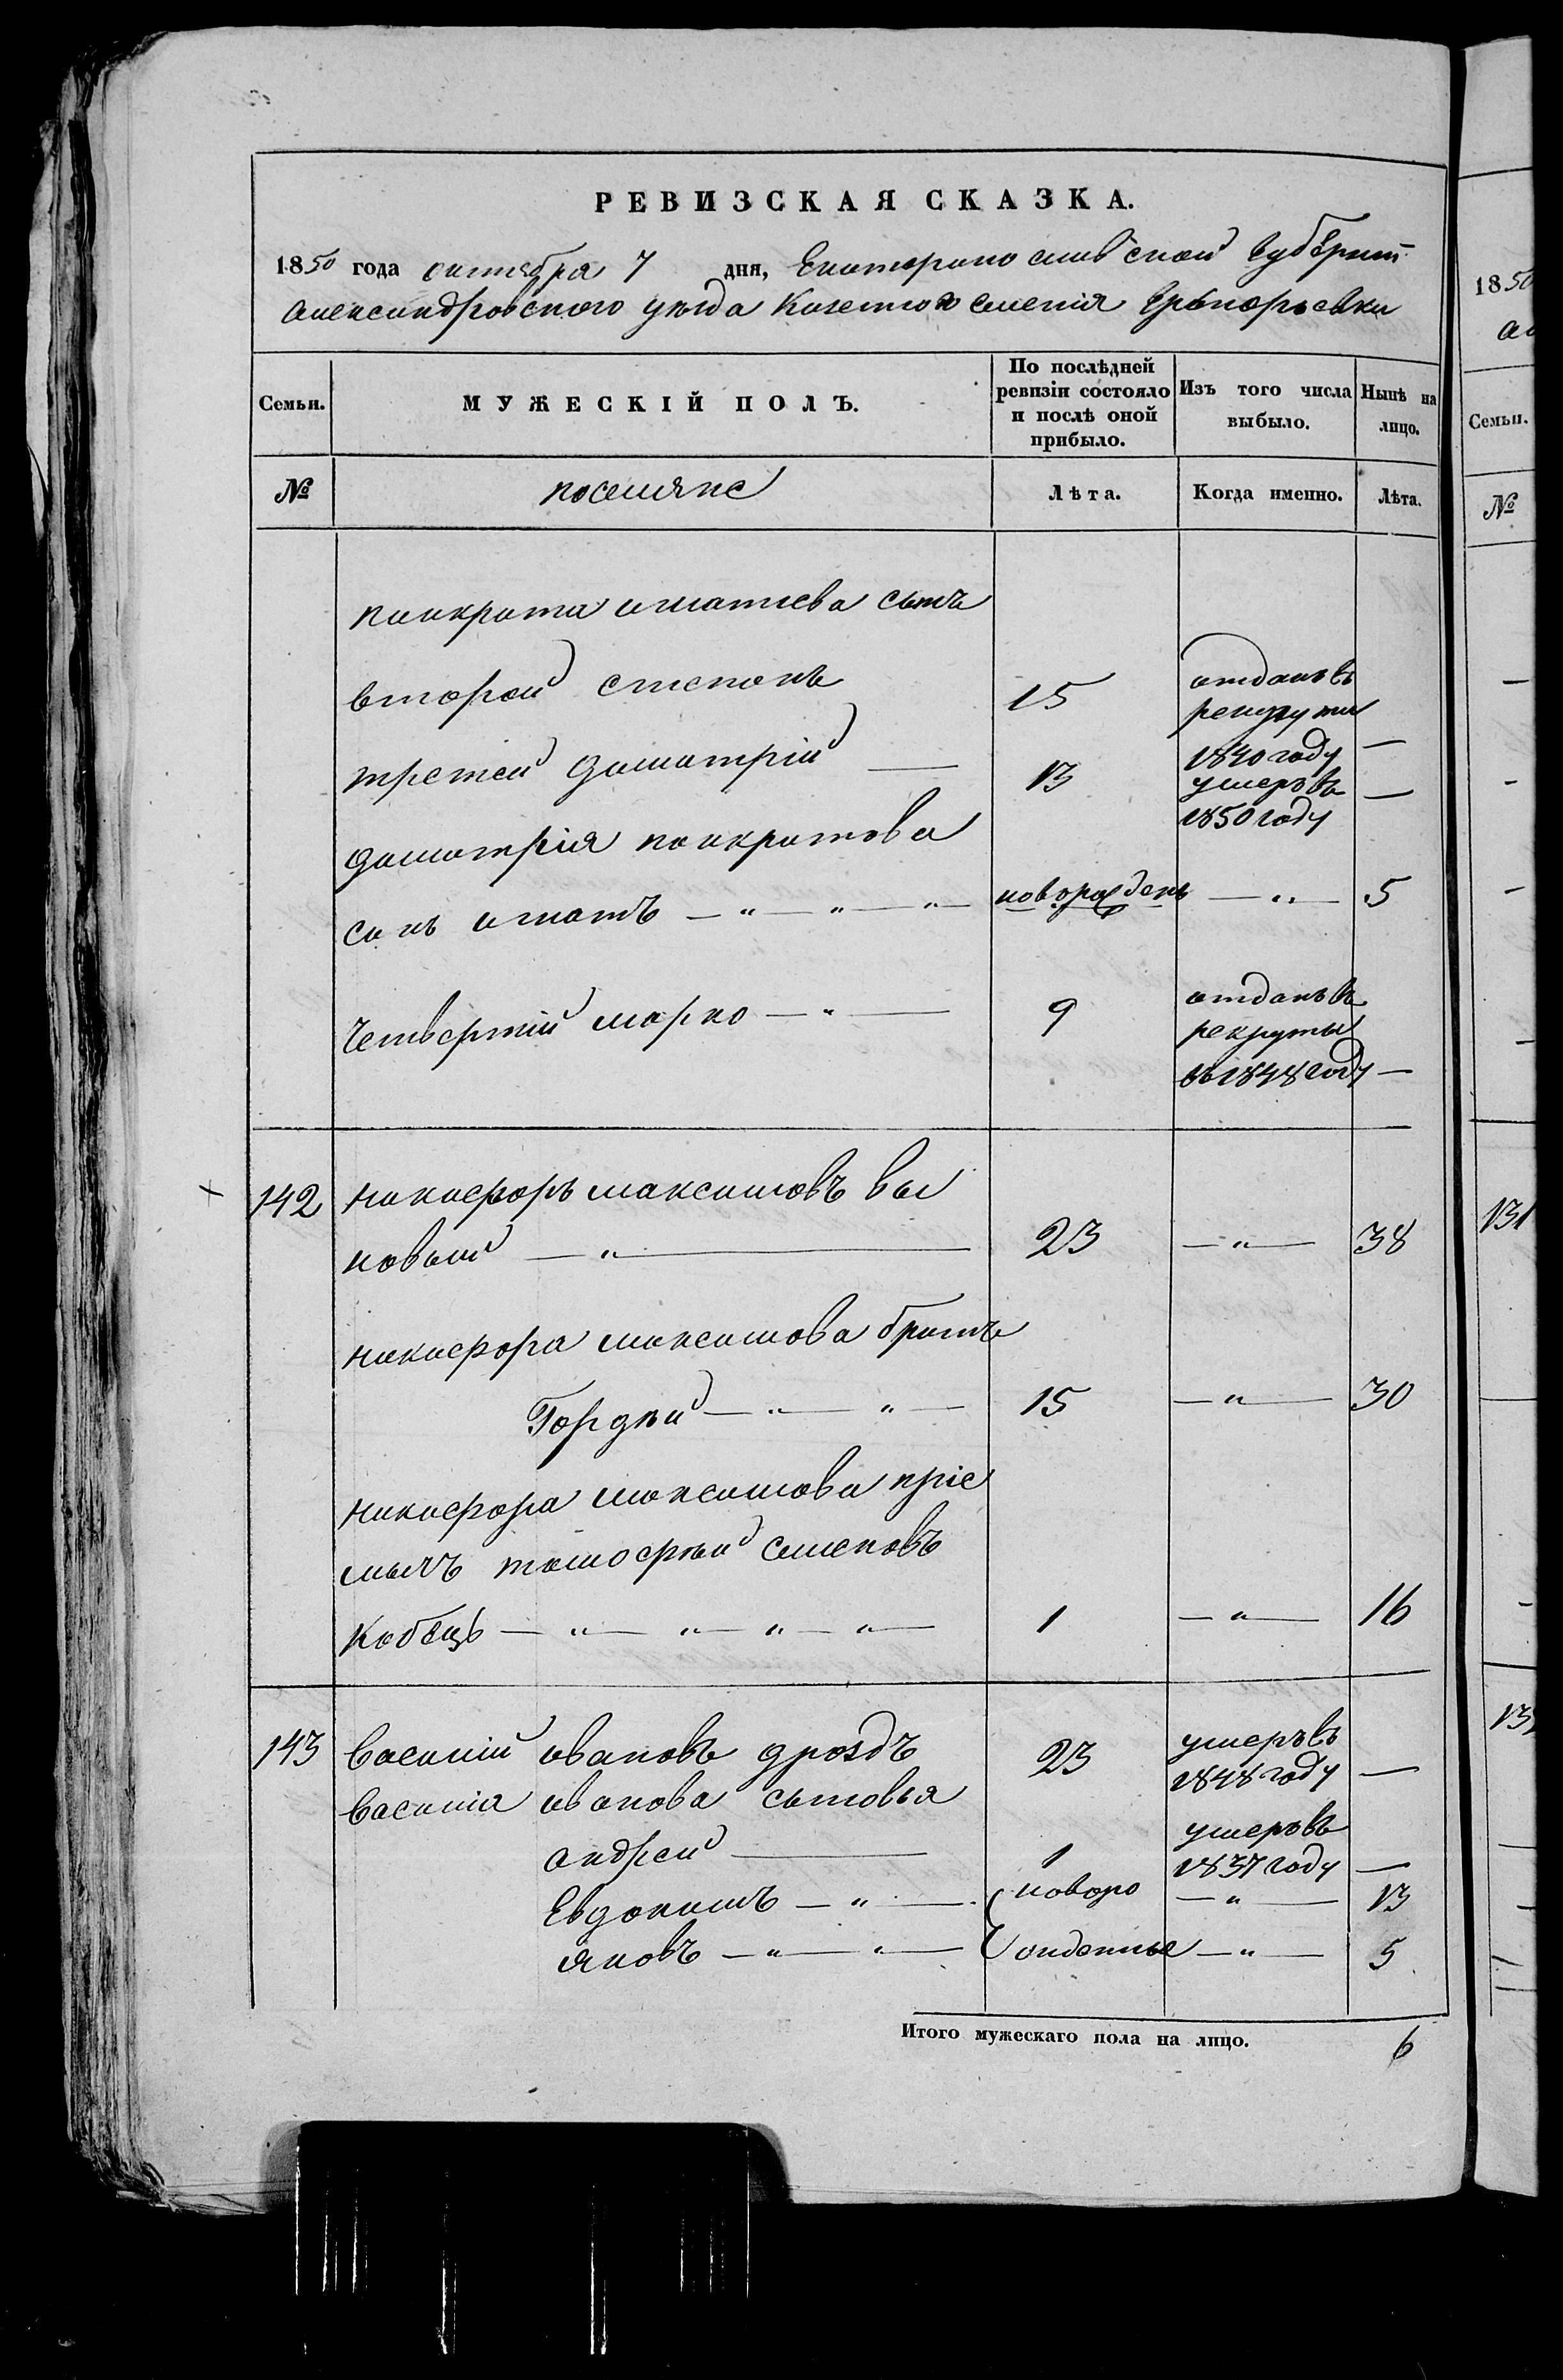 РЕВИЗСКАЯ СКАЗКА.
1850 года октября 7 дня, Екатеринославской губернии
Александровского уезда Казенного селения Григорьевки
Семьи. МУЖЕСКІЙ ПОЛЪ. По послѣдней ревизіи состояло и послѣ оной прибыло. Изъ того числа выбыло. Нынѣ на лицо.
№ поселяне Лѣта. Когда именно. Лѣта.
панкрата игнатиева сынъ
второй степанъ 15 отданъ въ рекруты 1840 году —
третей димитрій — 13 умеръ въ 1850 году —
димитрія панкратова
синъ игнатъ — " — " — " — новорожденъ — " — 5
четвертій марко — " — 9 отданъ въ рекруты въ 1848 году —
142 никифоръ максимовъ вы
новый — " — 23 — " — 38
никифора максимова братъ
Гордѣй — " — " — 15 — " — 30
никифора максимова пріе
мычъ тимофѣй семеновъ
Кобецъ — " — " — " — " — 1 — " — 16
143 василій ивановъ дроздъ 23 умеръ въ 1848 году —
василія иванова сыновья
андрей — 1 умеръ въ 1837 году —
Евдокимъ — " — новоро — " — 13
яковъ — " — " — жденные — " — 5
Итого мужескаго пола на лицо. 6
1850
Семьи.
№
131